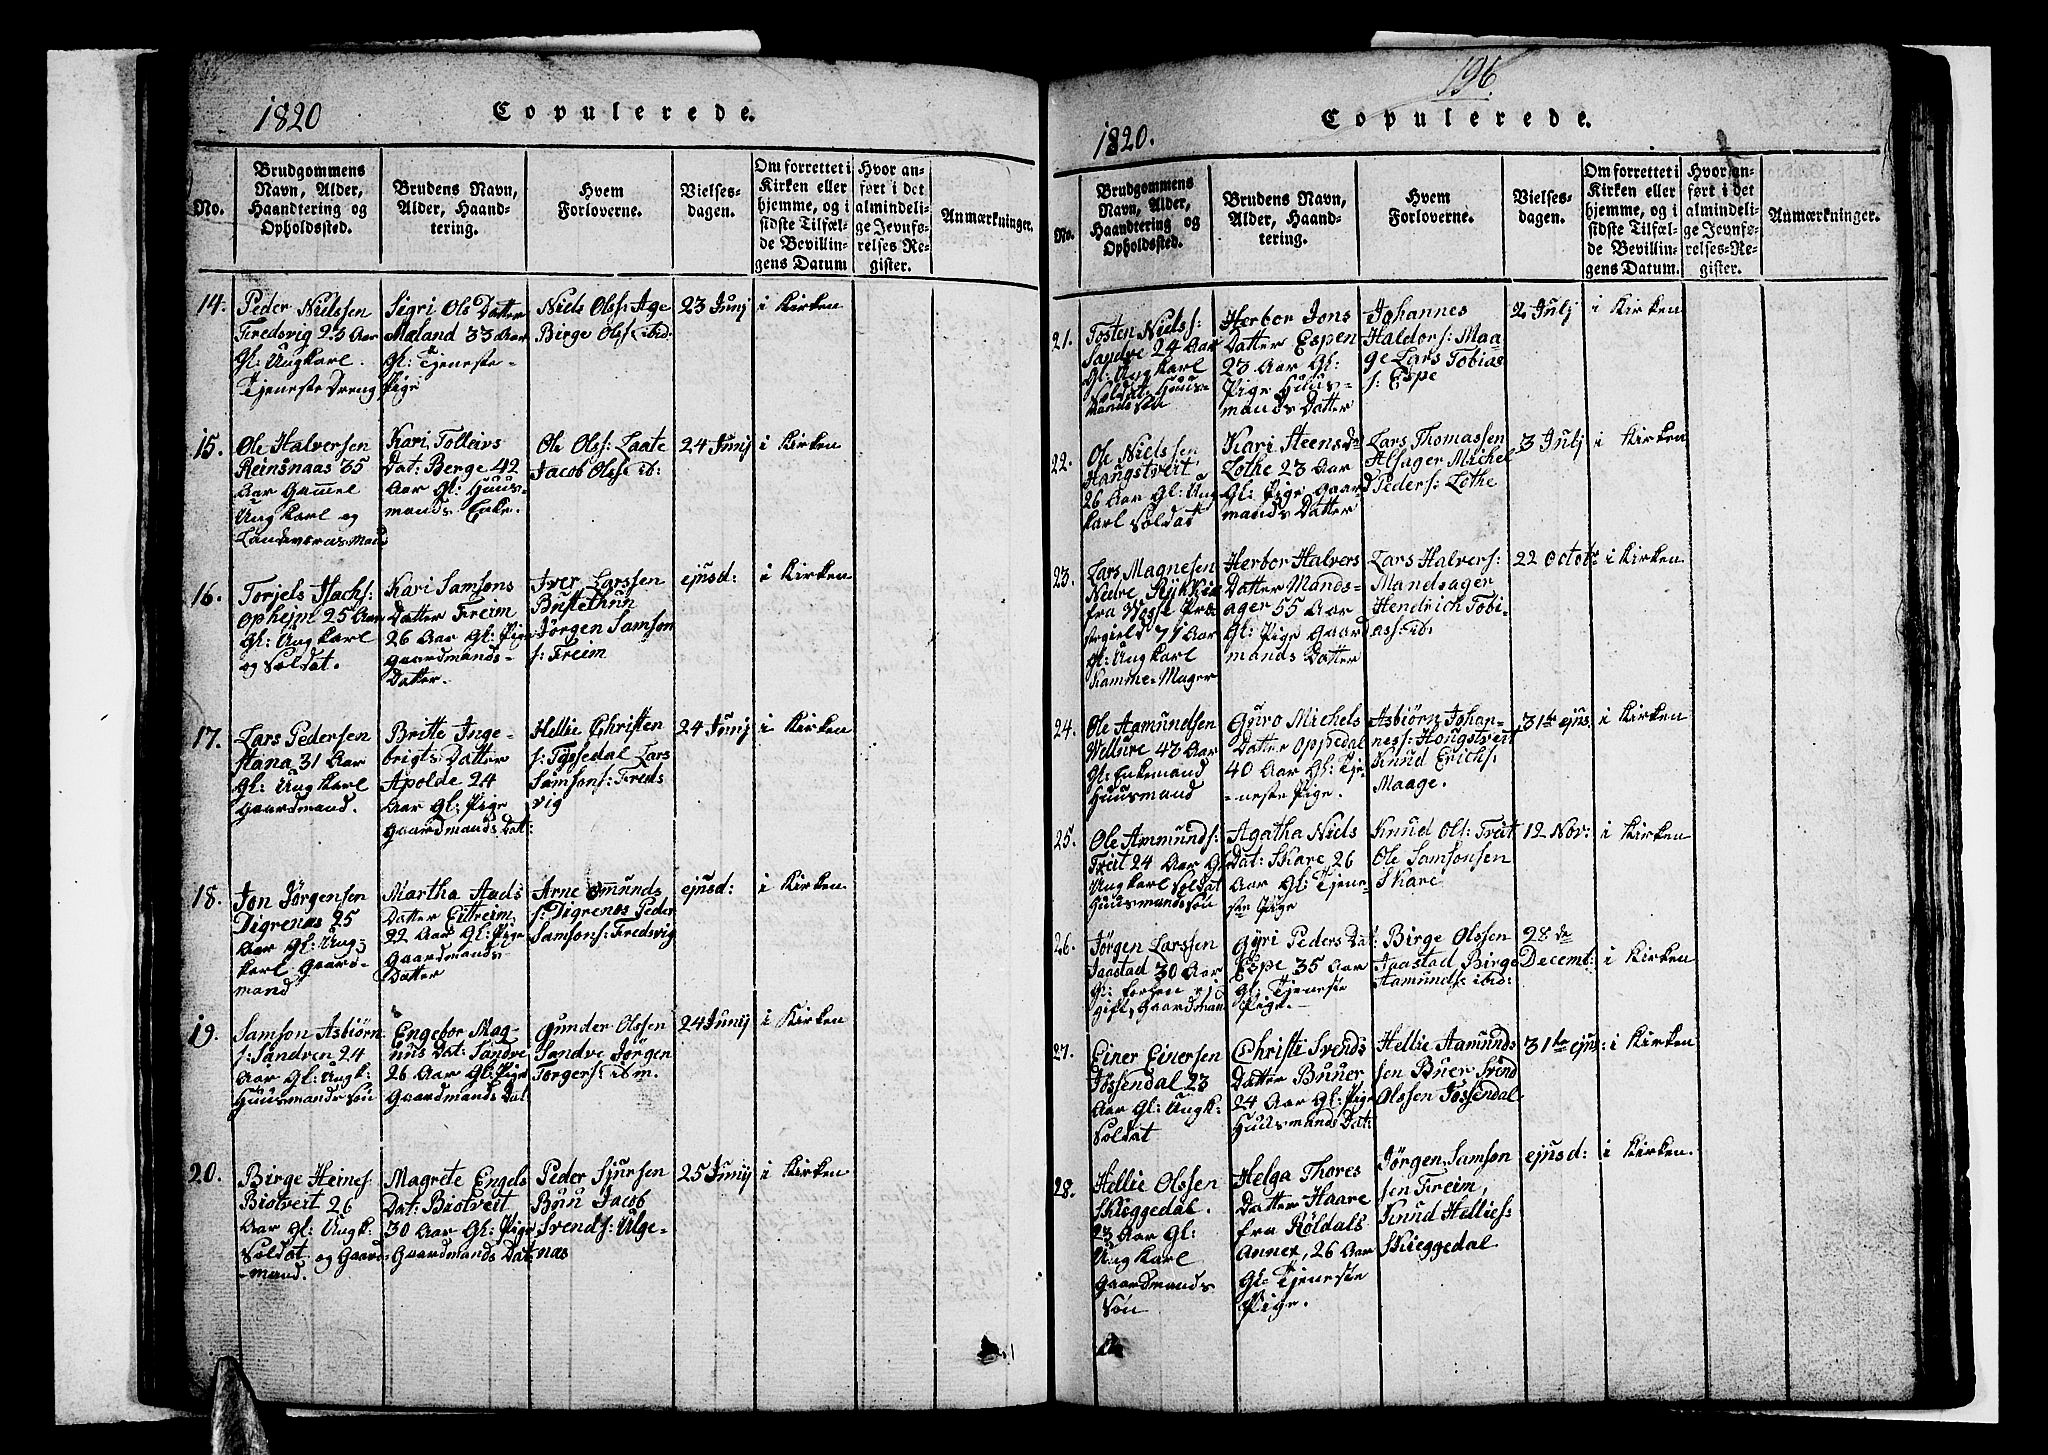 1820 Copulerede.
No.
Brudgommens Navn, Alder, Haandtering og Opholdssted.
Brudens Navn, Alder, Haandtering.
Hvem Forloverne.
Vielsesdagen.
Om forrettet i Kirken eller hjemme, og i sidste Tilfælde Bevillingens Datum
Hvor anført i det almindelige Jevnførelses-Register.
Anmærkninger.
14.
Peder Nielssen
Fredsvig 23 Aar
Gl: Ungkarl.
Tjeneste Dreng
Sigri Ols Datter
Maland 33 Aar
Gl: Tjeneste-
Pige
Niels Olss: Age
Birge Olss: ibid:
23 Junij
i Kirken
15.
Ole Halversen
Reinsnaas 35
Aar Gammel
Ungkarl og
Landeværns Mand
Kari Tolleivs
Dat: Berge 42
Aar Gl: Huus-
mands Enke.
Ole Olss: Laate
Jacob Olss: ib:
24 Junij
i Kirken
16.
Torjels Isachs:
Opheim 25 Aar
Gl: Ungkarl
og Soldat.
Kari Samsons
Datter Freim
26 Aar Gl: Pige
Gaardmands-
Datter.
Iver Larssen
Bustethun
Jørgen Samson
s: Freim
ejusd:
i Kirken
17.
Lars Pedersen
Hana 31 Aar
Gl: Ungkarl
Gaardmand.
Britte Inge-
brigts Datter
Apolde 24
Aar Gl: Pige
Gaardmands Dat:
Hellie Christen
s: Tyssedal Lars
Samsons: Freds
vig
24 Junij
i Kirken
18.
Jon Jørgensen
Digrenæs 25
Aar Gl: Ung-
karl Gaard-
mand
Martha Aads
Datter Eitreim
22 Aar Gl: Pige
Gaardmands-
Datter
Arne Omunds
s: Digrenæs Peder
Samsons: Fredsvig
ejusd:
i Kirken
19.
Samson Asbiørn
s: Sandven 24
Aar Gl: Ungk:
Huusmands Søn
Engebor Mag-
nus Dat: Sandve
26 Aar Gl: Pige
Gaardmands Dat
Gunder Olssen
Sandve Jørgen
Torgers: ibm.
24 Junij
i Kirken
20.
Birge Heines:
Biotveit 26
Aar Gl: Ungk:
Soldat og Gaard-
mand.
Magrete Engels
Dat: Biotveit
30 Aar Gl: Pige
Gaardmands Dat
Peder Sjursen
Buu Jacob
Svends: Ulge-
næs
25 Junij
i Kirken
196.
1820. Copulerede.
No.
Brudgommens Navn, Alder, Haandtering og Opholdssted.
Brudens Navn, Alder, Haandtering.
Hvem Forloverne.
Vielsesdagen.
Om forrettet i Kirken eller hjemme, og i sidste Tilfælde Bevillingens Datum.
Hvor anført i det almindelige Jevnførelses-Register.
Anmærkninger.
21.
Tosten Nielss:
Sandve 24 Aar
Gl: Ungkarl
Soldat Huus-
mands Søn
Herbor Jons
Datter Espen
23 Aar Gl:
Pige Huus-
mands Datter
Johannes
Haldors: Maa-
ge Lars Tobias
s: Espe
2 Julj
i Kirken
22.
Ole Nielssen
Haugstveit
26 Aar Gl: Ung
karl Soldat
Kari Steens Da
Lothe 23 Aar
Gl: Pige Gaard
mands Datter
Lars Thomassen
Alsager Michel
Peders: Lothe
3 Julj
i Kirken
23.
Lars Magnesen
Nedre Rykkie
fra Vosse Præ
stegield 71 Aar
Gl: Ungkarl
Kamme-Mager
Herbor Halvers
Datter Mands-
ager 55 Aar
Gl: Pige Gaard
mands Datter
Lars Halvers:
Mandsager
Hendrich Tobi-
ass: ib:
22 Octobr
i Kirken
24.
Ole Aamundsen
Vellure 43 Aar
Gl: Enkemand
Huusmand
Guro Michels
Datter Oppedal
40 Aar Gl: Tje-
neste Pige.
Asbiørn Johan-
ness: Hougstveit
Knud Erichs:
Maage.
31te ejus.
i Kirken
25.
Ole Ammunds:
Treit 24 Aar Gl
Ungkarl Soldat
Huusmands Søn
Agatha Niels
Dat: Skare 26
Aar Gl: Tjene-
ste Pige
Knud Ols: Treit
Ole Samsonsen
Skare
12 Nov:
i Kirken
26.
Jørgen Larssen
Jaastad 30 Aar
Gl:
gift, Gaardmand
Gyri Peders Dat:
Espe 35 Aar
Gl: Tjeneste
Pige.
Birge Olssen
Jaastad Birge
Aamunds: ibid:
28de
Decemb:
i Kirken
27.
Einer Einersen
Jøssendal 23
Aar Gl: Ungk:
Soldat
Christi Svends
Datter Buuer
24 Aar Gl: Pige
Huusmands Dat:
Hellie Aamunds
sen Buer Svend
Olssen Jøssendal
31te ejus:
i Kirken
28.
Hellie Olssen
Skieggedal.
23 Aar Gl:
Ungkarl
Gaardmands
Søn
Helga Thores
Datter Haare
fra Røldals
Annex, 26 Aar
Gl: Tjeneste
Pige.
Jørgen Samson
sen Freim,
Knud Hellies:
Skieggedal
ejusd:
i Kirken.